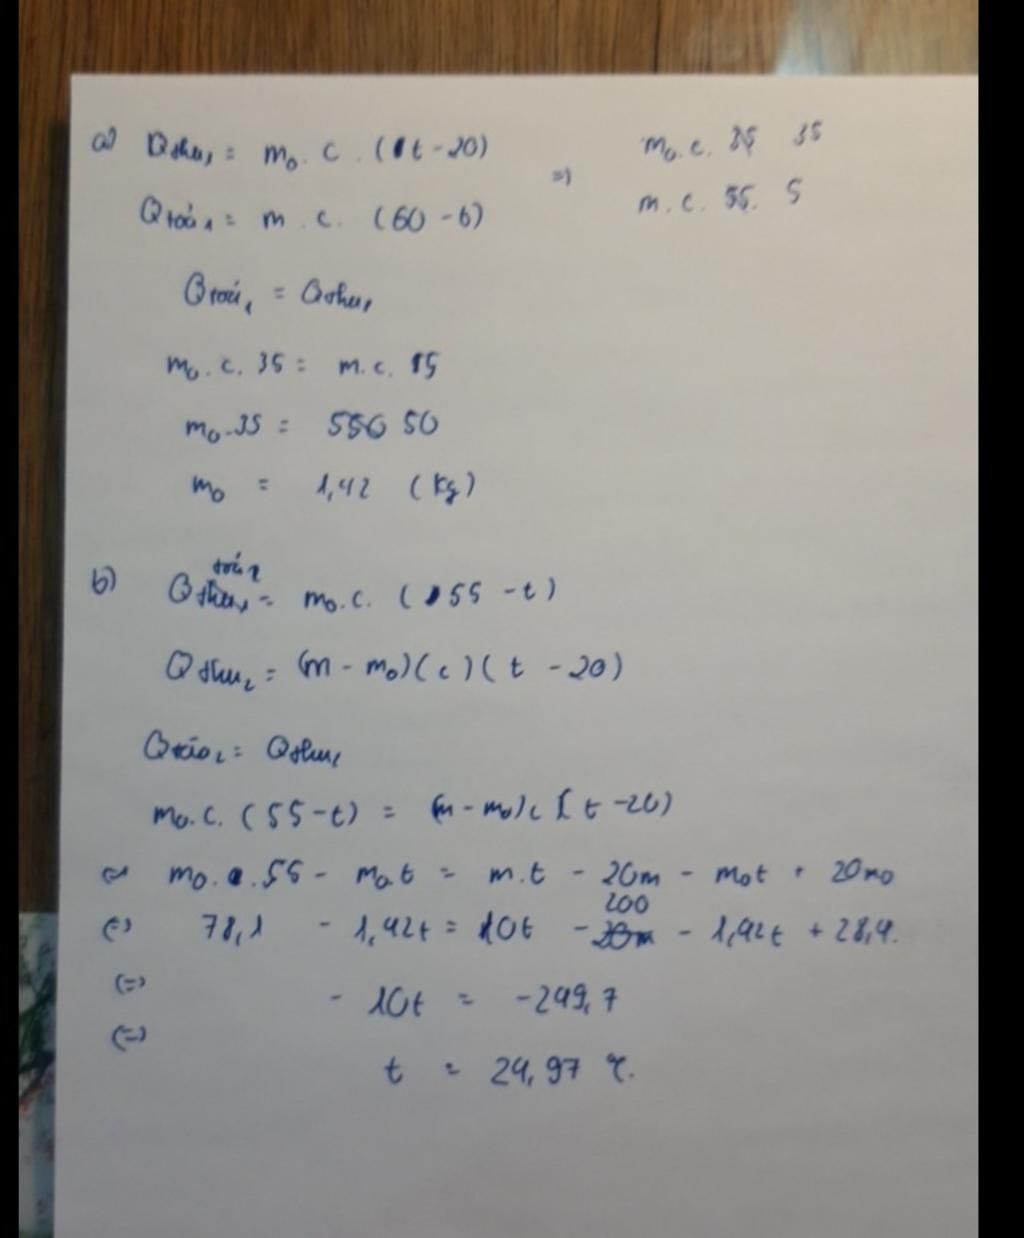 a) Qthu₁ = m₀. c . (t - 20) => m₀. c. 35 35
Qtoả₁ = m . c. (60 - t) m. c. 55. 5
Qtoả₁ = Qthu₁
m₀. c. 35 = m. c. 5
m₀.35 = 550 50
m₀ = 1,42 (kg)
b) Qthu₁ toả₂ = m₀.c. (55 - t)
Qthu₂ = (m - m₀)(c)(t - 20)
Qtoả₂ = Qthu₂
m₀.c. (55 - t) = (m - m₀)c[t - 20)
<=> m₀ . 55 - m₀.t = m.t - 20m - m₀t + 20m₀
<=> 78,1 - 1,42t = 10t - 20m 200 - 1,42t + 28,4.
<=> - 10t = -249,7
<=> t = 24,97 °C.